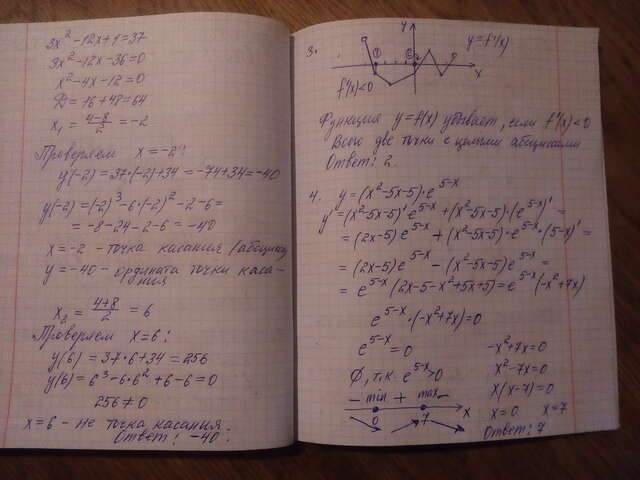 3x² - 12x + 1 = 37
3x² - 12x - 36 = 0
x² - 4x - 12 = 0
D = 16 + 48 = 64
x₁ = (4-8)/2 = -2
Проверяем x = -2:
y(-2) = 37·(-2) + 34 = -74 + 34 = -40
y(-2) = (-2)³ - 6·(-2)² - 2 - 6 =
= -8 - 24 - 2 - 6 = -40
x = -2 - точка касания (абцисса)
y = -40 - ордината точки каса-
ния
x₂ = (4+8)/2 = 6
Проверяем x = 6:
y(6) = 37·6 + 34 = 256
y(6) = 6³ - 6·6² + 6 - 6 = 0
256 ≠ 0
x = 6 - не точка касания.
Ответ: -40
3.
y
y = f'(x)
x
f'(x) < 0
Функция y = f(x) убывает, если f'(x) < 0
Всего две точки с целыми абциссами
Ответ: 2.
4. y = (x² - 5x - 5)·e^(5-x)
y' = (x² - 5x - 5)' e^(5-x) + (x² - 5x - 5)·(e^(5-x))' =
= (2x - 5) e^(5-x) + (x² - 5x - 5)·e^(5-x)·(5-x)' =
= (2x - 5) e^(5-x) - (x² - 5x - 5) e^(5-x) =
= e^(5-x) (2x - 5 - x² + 5x + 5) = e^(5-x) (-x² + 7x)
e^(5-x)·(-x² + 7x) = 0
e^(5-x) = 0
∅, т.к. e^(5-x) > 0
-x² + 7x = 0
x² - 7x = 0
x(x - 7) = 0
x = 0 x = 7
- min + max -
0 7 x
Ответ: 7